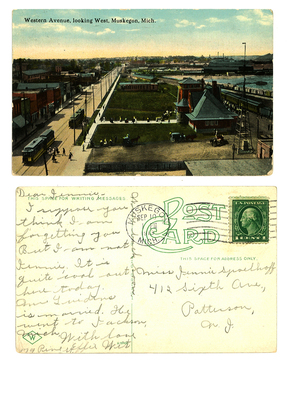 Western Avenue, looking West, Muskegon, Mich.
Dear Jennie -
THIS SPACE FOR WRITING MESSAGES
I suppose you
think I am
forgetting you
But I am not
Jennie. It is
quite cool out
here today.
is married. He
went to Jackson
Mich. With love
MUSKEGON
SEP 10
MICH.
POST
CARD
THIS SPACE FOR ADDRESS ONLY
Miss Jennie
412 Sixth Ave,
Patterson,
N. J.